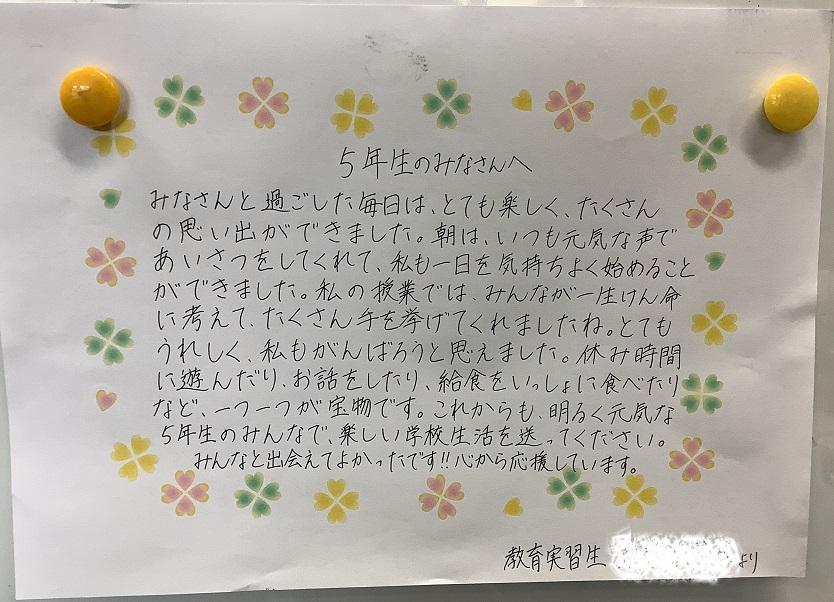 5年生のみなさんへ
みなさんと過ごした毎日は、とても楽しく、たくさん
の思い出ができました。朝は、いつも元気な声で
あいさつをしてくれて、私も一日を気持ちよく始めること
ができました。私の授業では、みんなが一生けん命
に考えて、たくさん手を挙げてくれましたね。とても
うれしく、私もがんばろうと思えました。休み時間
に遊んだり、お話をしたり、給食をいっしょに食べたり
など、一つ一つが宝物です。これからも、明るく元気な
5年生のみんなで、楽しい学校生活を送ってください。
みんなと出会えてよかったです!!心から応援しています。
教育実習生 より